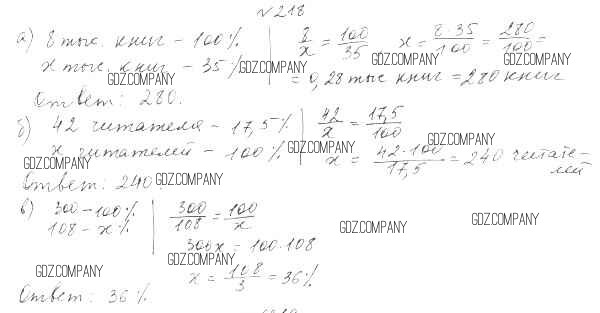 № 218
а) 8 тыс. книг – 100% | 8/x = 100/35   x = 8·35/100 = 280/100 =
x тыс. книг – 35% | = 0,28 тыс книг = 280 книг
GDZ.COMPANY GDZ.COMPANY GDZ.COMPANY GDZ.COMPANY
Ответ: 280.
б) 42 читателя – 17,5% | 42/x = 17,5/100
x читателей – 100% | x = 42·100/17,5 = 240 читате-
лей
GDZ.COMPANY GDZ.COMPANY GDZ.COMPANY
Ответ: 240. GDZ.COMPANY
в) 300 – 100% | 300/108 = 100/x
108 – x% | 300x = 100·108
GDZ.COMPANY GDZ.COMPANY
GDZ.COMPANY GDZ.COMPANY
x = 108/3 = 36%
Ответ: 36%